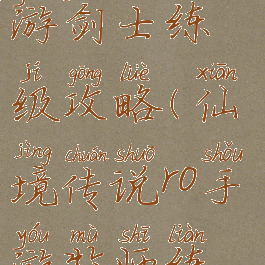 游剑士练
jí gōng lüè xiān
级攻略(仙
jìng chuán shuō shǒu
境传说ro手
yóu mù shī liàn
游牧师练